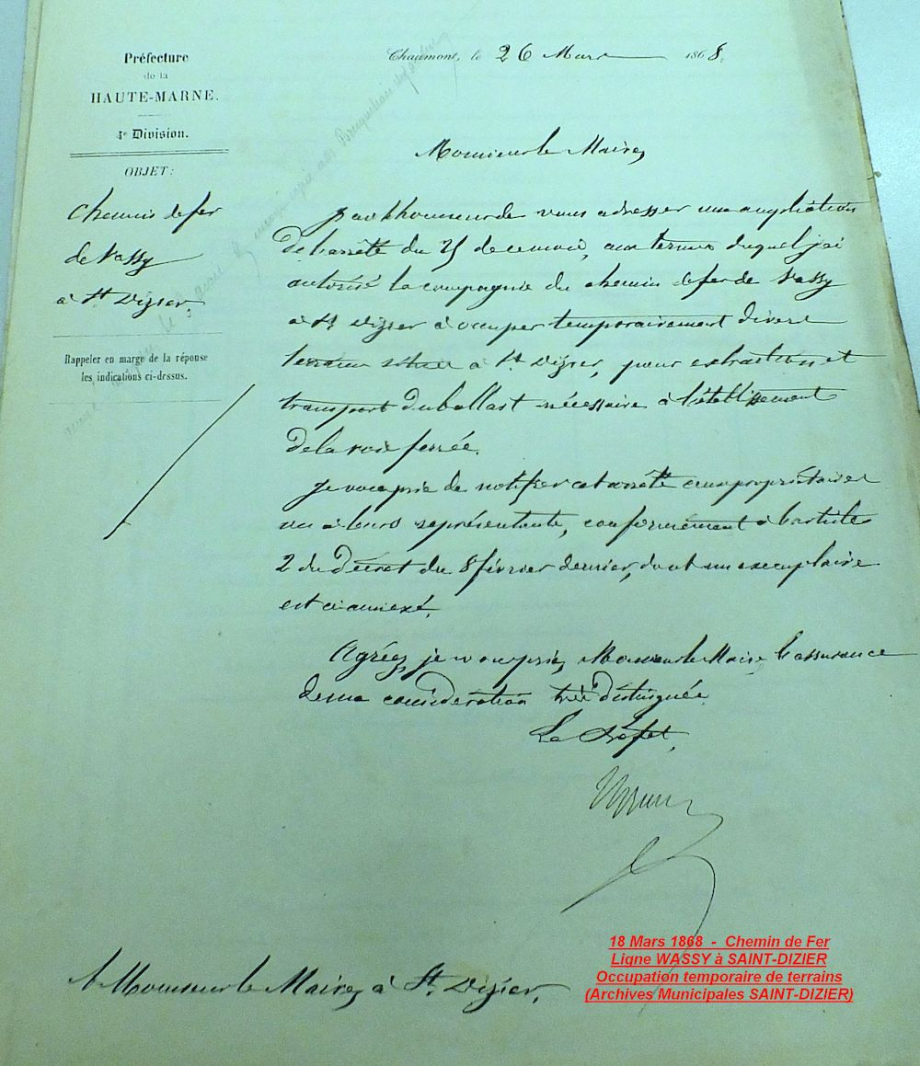 Préfecture
de la
HAUTE-MARNE.
4e Division.
OBJET:
Chemin de fer
de Vassy
à St Dizier.
Rappeler en marge de la réponse
les indications ci-dessus.
Chaumont, le 26 Mars 1868.
Monsieur le Maire,
J'ai l'honneur de vous adresser une ampliation
de l'arrêté du 25 de ce mois, aux termes duquel j'ai
autorisé la compagnie du chemin de fer de Vassy
à St Dizier à occuper temporairement divers
terrains situés à St Dizier, pour extraction et
transport du ballast nécessaire à l'établissement
de la voie ferrée.
Je vous prie de notifier cet arrêté aux propriétaires
ou à leurs représentants, conformément à l'article
2 du Décret du 8 février dernier, dont un exemplaire
est ci annexé.
Agréez, je vous prie, Monsieur le Maire, l'assurance
de ma considération très distinguée.
Le Préfet,
A Monsieur le Maire à St. Dizier.
18 Mars 1868 - Chemin de Fer
Ligne WASSY à SAINT-DIZIER
Occupation temporaire de terrains
(Archives Municipales SAINT-DIZIER)